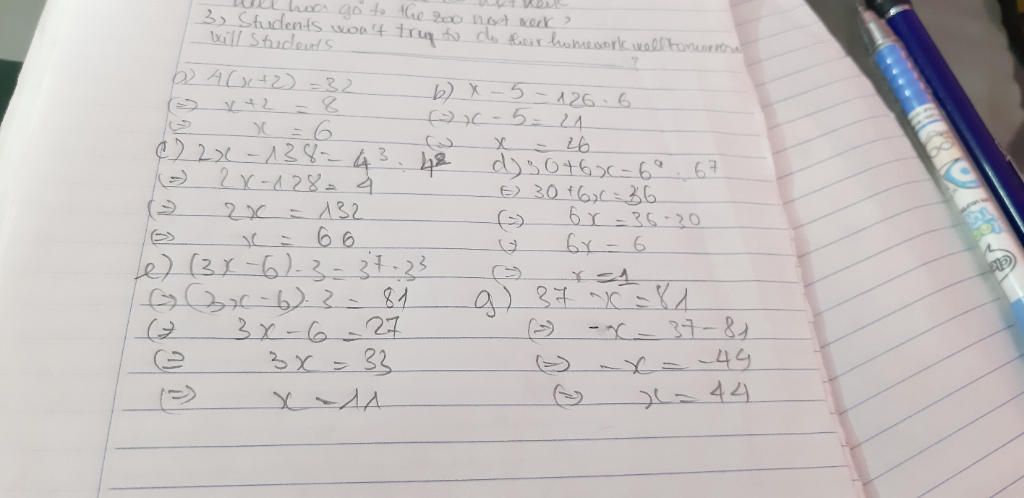 go to the zoo next week ?
3, Students won't try to do their homework well tomorrow
will Students ?
a) 4(x+2) = 32
(=) x+2 = 8
(=) x = 6
b) x - 5 = 126 : 6
(=) x - 5 = 21
(=) x = 26
c) 2x - 138 = 4³ : 4²
(=) 2x - 128 = 4
(=) 2x = 132
(=) x = 66
d) 30+6x = 6⁹ : 6⁷
(=) 30+6x = 36
(=) 6x = 36-30
(=) 6x = 6
(=) x = 1
e) (3x - 6) . 3 = 3⁷ : 3³
(=) (3x - 6) . 3 = 81
(=) 3x - 6 = 27
(=) 3x = 33
(=) x = 11
g) 37 - x = 81
(=) - x = 37 - 81
(=) - x = - 44
(=) x = 44